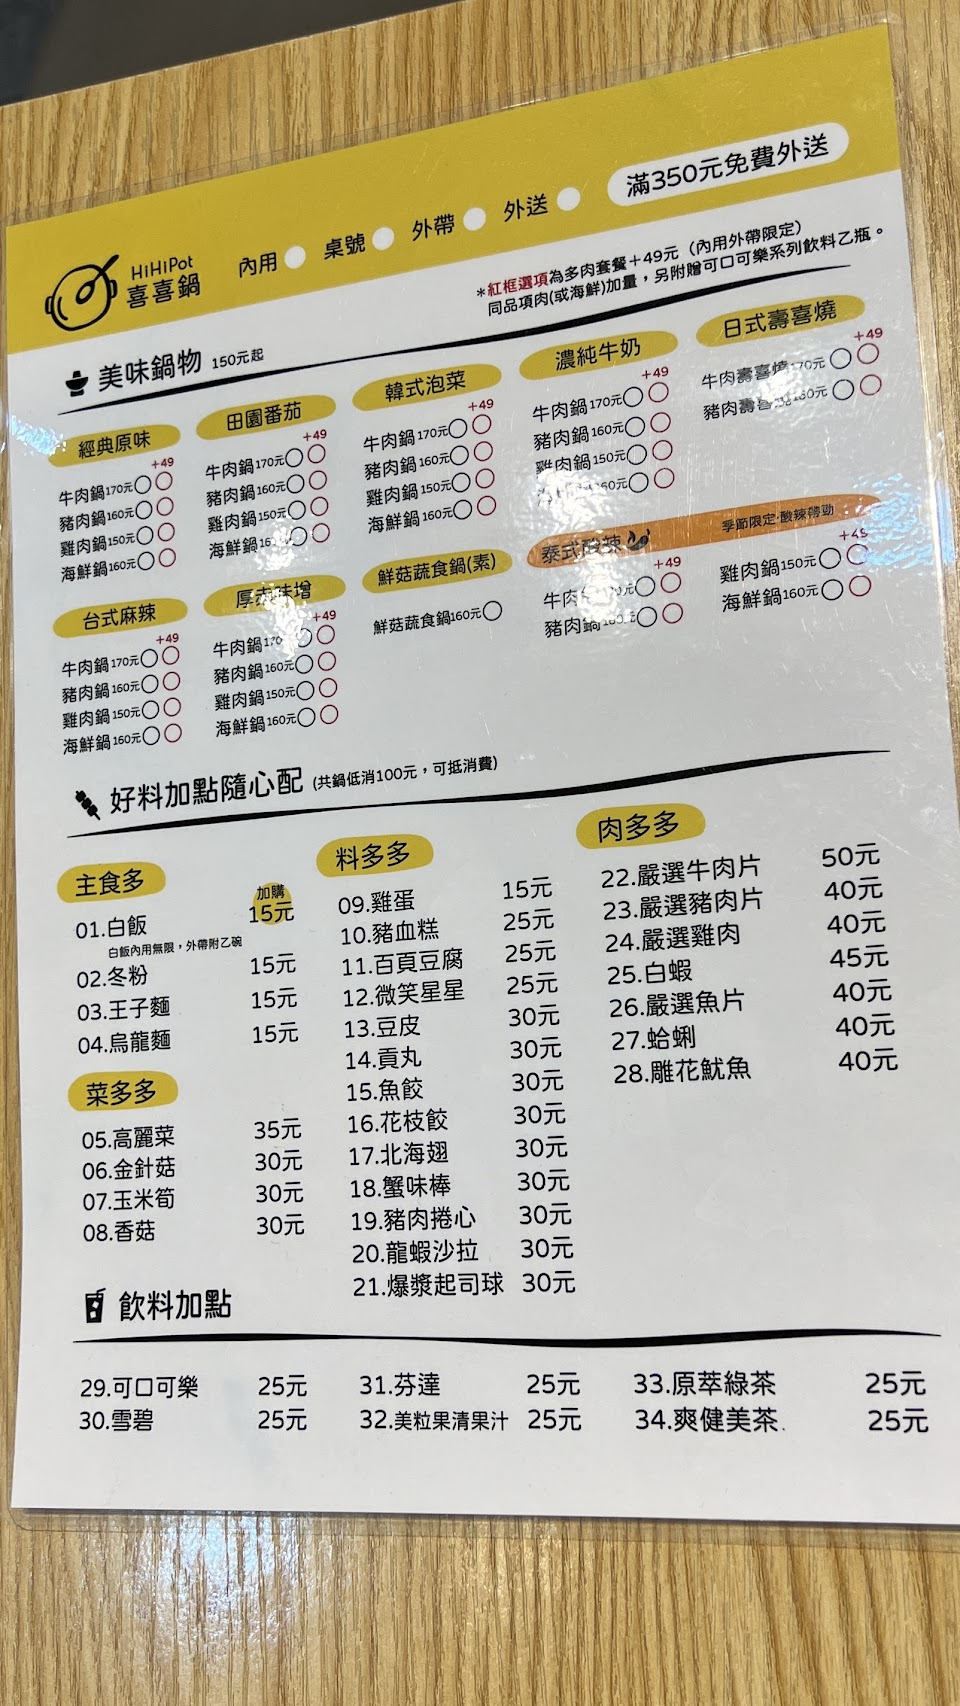 HiHiPot
喜喜鍋
內用 桌號 外帶 外送 滿350元免費外送
*紅框選項為多肉套餐+49元（內用外帶限定）
同品項肉(或海鮮)加量，另附贈可口可樂系列飲料乙瓶。
美味鍋物 150元起
經典原味
+49
牛肉鍋170元
豬肉鍋160元
雞肉鍋150元
海鮮鍋160元
田園番茄
+49
牛肉鍋170元
豬肉鍋160元
雞肉鍋150元
海鮮鍋
韓式泡菜
+49
牛肉鍋170元
豬肉鍋160元
雞肉鍋150元
海鮮鍋160元
濃純牛奶
+49
牛肉鍋170元
豬肉鍋160元
雞肉鍋150元
日式壽喜燒
+49
牛肉壽喜燒170元
豬肉壽喜
台式麻辣
+49
牛肉鍋170元
豬肉鍋160元
雞肉鍋150元
海鮮鍋160元
厚赤味增
+49
牛肉鍋
豬肉鍋160元
雞肉鍋150元
海鮮鍋160元
鮮菇蔬食鍋(素)
鮮菇蔬食鍋160元
泰式酸辣 季節限定·酸辣帶勁
+49
牛肉
豬肉鍋
+49
雞肉鍋150元
海鮮鍋160元
好料加點隨心配 (共鍋低消100元，可抵消費)
主食多
加購
01.白飯 15元
白飯內用無限，外帶附乙碗
02.冬粉 15元
03.王子麵 15元
04.烏龍麵 15元
菜多多
05.高麗菜 35元
06.金針菇 30元
07.玉米筍 30元
08.香菇 30元
料多多
09.雞蛋 15元
10.豬血糕 25元
11.百頁豆腐 25元
12.微笑星星 25元
13.豆皮 30元
14.貢丸 30元
15.魚餃 30元
16.花枝餃 30元
17.北海翅 30元
18.蟹味棒 30元
19.豬肉捲心 30元
20.龍蝦沙拉 30元
21.爆漿起司球 30元
肉多多
22.嚴選牛肉片 50元
23.嚴選豬肉片 40元
24.嚴選雞肉 40元
25.白蝦 45元
26.嚴選魚片 40元
27.蛤蜊 40元
28.雕花魷魚 40元
飲料加點
29.可口可樂 25元
30.雪碧 25元
31.芬達 25元
32.美粒果清果汁 25元
33.原萃綠茶 25元
34.爽健美茶 25元